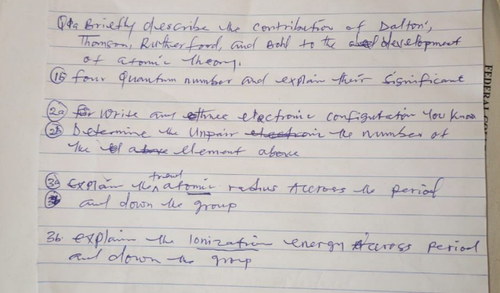 Q1a Briefly describe the contribution of Dalton,
Thomson, Rutherford, and Bohl to the development
of atomic theory.
1b four Quantum number and explain their significant
2a write any three electronic configuration You know
2b Determine the Unpair the number of
the element above
3a explain the trend atomic radius Accross the period
and down the group
3b explain the Ionization energy Accross period
and down the group
FEDERAL